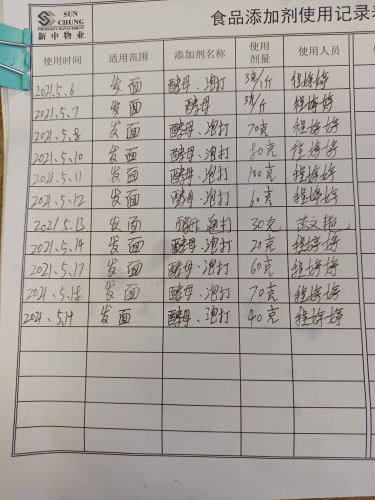 SUN CHUNG
PROPERTY MANAGEMENT
新中物业
食品添加剂使用记录表
使用时间 适用范围 添加剂名称 使用剂量 使用人员
2021.5.6 发面 酵母、泡打 3克/斤 程婷婷
2021.5.7 发面 酵母 3克/斤 程婷婷
2021.5.8 发面 酵母、泡打 70克 程婷婷
2021.5.10 发面 酵母、泡打 80克 程婷婷
2021.5.11 发面 酵母、泡打 100克 程婷婷
2021.5.12 发面 酵母、泡打 60克 程婷婷
2021.5.13 发面 酵母 泡打 30克
2021.5.14 发面 酵母、泡打 20克 程婷婷
2021.5.17 发面 酵母、泡打 60克 程婷婷
2021.5.18 发面 酵母、泡打 70克 程婷婷
2021.5.19 发面 酵母、泡打 40克 程婷婷